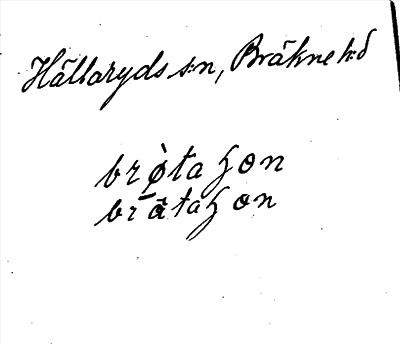 Hällaryds s:n, Bräkne h:d
brø̀taɧon
brātaɧon